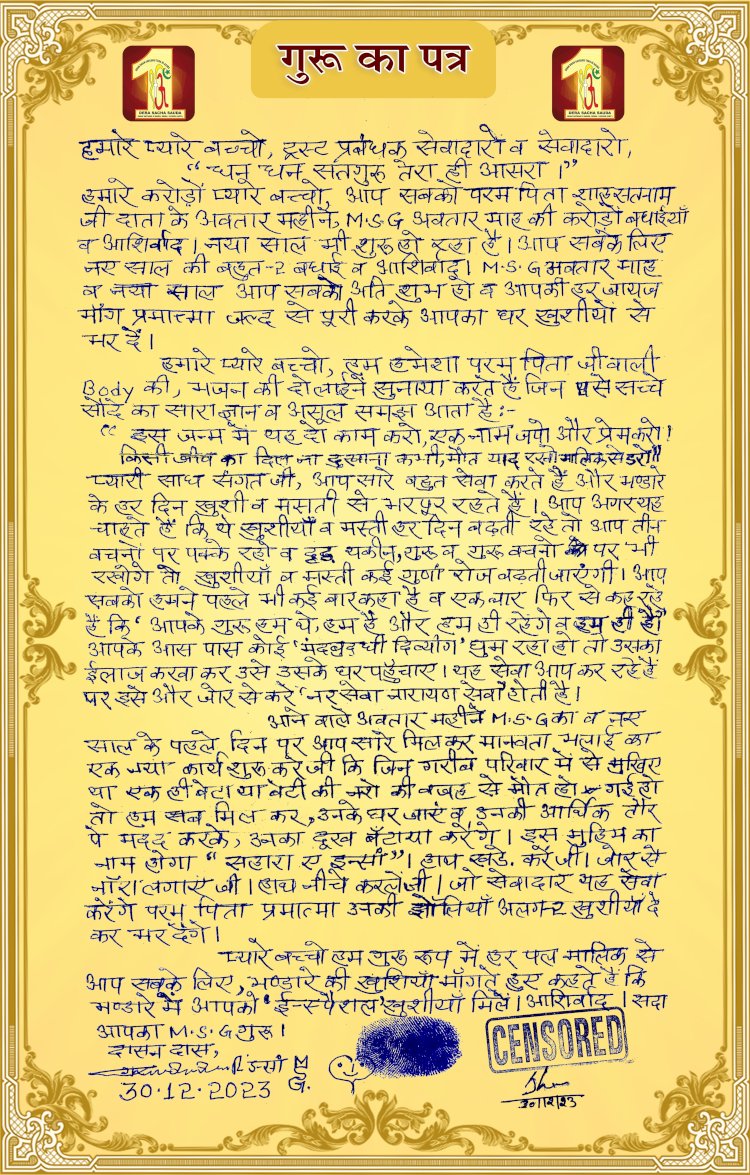 गुरू का पत्र
DERA SACHA SAUDA
DERA SACHA SAUDA
हमारे प्यारे बच्चो, ट्रस्ट प्रबंधक सेवादारो व सेवादारो,
“धन धन सतगुरू तेरा ही आसरा।”
हमारे करोड़ों प्यारे बच्चो, आप सबको परम पिता शाह सतनाम
जी दाता के अवतार महीने, M.S.G अवतार माह की करोड़ों बधाईयाँ
व आशिर्वाद। नया साल भी शुरू हो रहा है। आप सबके लिए
नए साल की बहुत-2 बधाई व आशिर्वाद। M.S.G अवतार माह
व नया साल आप सबको अति शुभ हो व आपकी हर जायज
माँग प्रमात्मा जल्द से पूरी करके आपका घर खुशीयों से
भर दें।
हमारे प्यारे बच्चो, हम हमेशा परम पिता जी वाली
Body की, भजन की दो लाईनें सुनाया करते हैं जिन से सच्चे
सौदे का सारा ज्ञान व असूल समझ आता है:-
“इस जन्म में यह दो काम करो, एक नाम जपो और प्रेम करो।
किसी जीव का दिल ना दुखाना कभी, मौत याद रखो मालिक से डरो”
प्यारी साध संगत जी, आप सारे बहुत सेवा करते हैं और भण्डारे
के हर दिन खुशी व मसती से भरपूर रहते हैं। आप अगर यह
चाहते हैं कि ये खुशीयाँ व मस्ती हर दिन बढ़ती रहे तो आप तीन
वचनों पर पक्के रहो व दृढ यकीन, गुरू व गुरू वचनो पर भी
रखोगे तो खुशीयाँ व मस्ती कई गुणा रोज बढती जाएंगी। आप
सबको हमने पहले भी कई बार कहा है व एक बार फिर से कह रहे
हैं कि ‘आपके गुरू हम थे, हम हैं और हम ही रहेंगे व हम ही हैं’
आपके आस पास कोई ‘मंदबुद्धी दिव्यांग’ घुम रहा हो तो उसका
ईलाज करवा कर उसे उसके घर पहुँचाए। यह सेवा आप कर रहे हैं
पर इसे और जोर से करें ‘नर सेवा नारायण सेवा’ होती है।
आने वाले अवतार महीने M.S.G का व नए
साल के पहले दिन पर आप सारे मिलकर मानवता भलाई का
एक नया कार्य शुरू करें जी कि जिन गरीब परिवार में से मुखिए
या एक ही बेटा या बेटी की नशे की वजह से मौत हो गई हो
तो हम सब मिल कर, उनके घर जाएं व उनकी आर्थिक तौर
पे मदद करके, उनका दुख बँटाया करेंगे। इस मुहिम का
नाम होगा “सहारा ए इन्सां”। हाथ खडे. करें जी। जोर से
नॉरा लगाएं जी। हाथ नीचे करलें जी। जो सेवादार यह सेवा
करेंगे परम पिता प्रमात्मा उनकी झोलियाँ अलग-2 खुशीयाँ दे
कर भर देंगे।
प्यारे बच्चो हम गुरू रूप में हर पल मालिक से
आप सबके लिए, भण्डारे की खुशियाँ माँगते हुए कहते हैं कि
भण्डारे में आपको ‘ईन्स्पैशल’ खुशीयाँ मिलें। आशिर्वाद। सदा
आपका M.S.G गुरू।
दासन दास,
M
S
G.
30.12.2023
CENSORED
30/12/23